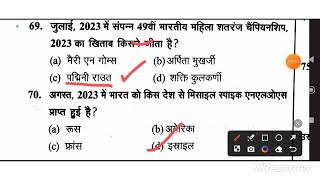 69. जुलाई, 2023 में संपन्न 49वीं भारतीय महिला शतरंज चैंपियनशिप,
2023 का खिताब किसने जीता है?
(a) मैरी एन गोम्स (b) अर्पिता मुखर्जी
(c) पद्मिनी राउत (d) शक्ति कुलकर्णी
70. अगस्त, 2023 में भारत को किस देश से मिसाइल स्पाइक एनएलओएस
प्राप्त हुई है?
(a) रूस (b) अमेरिका
(c) फ्रांस (d) इस्राइल
75